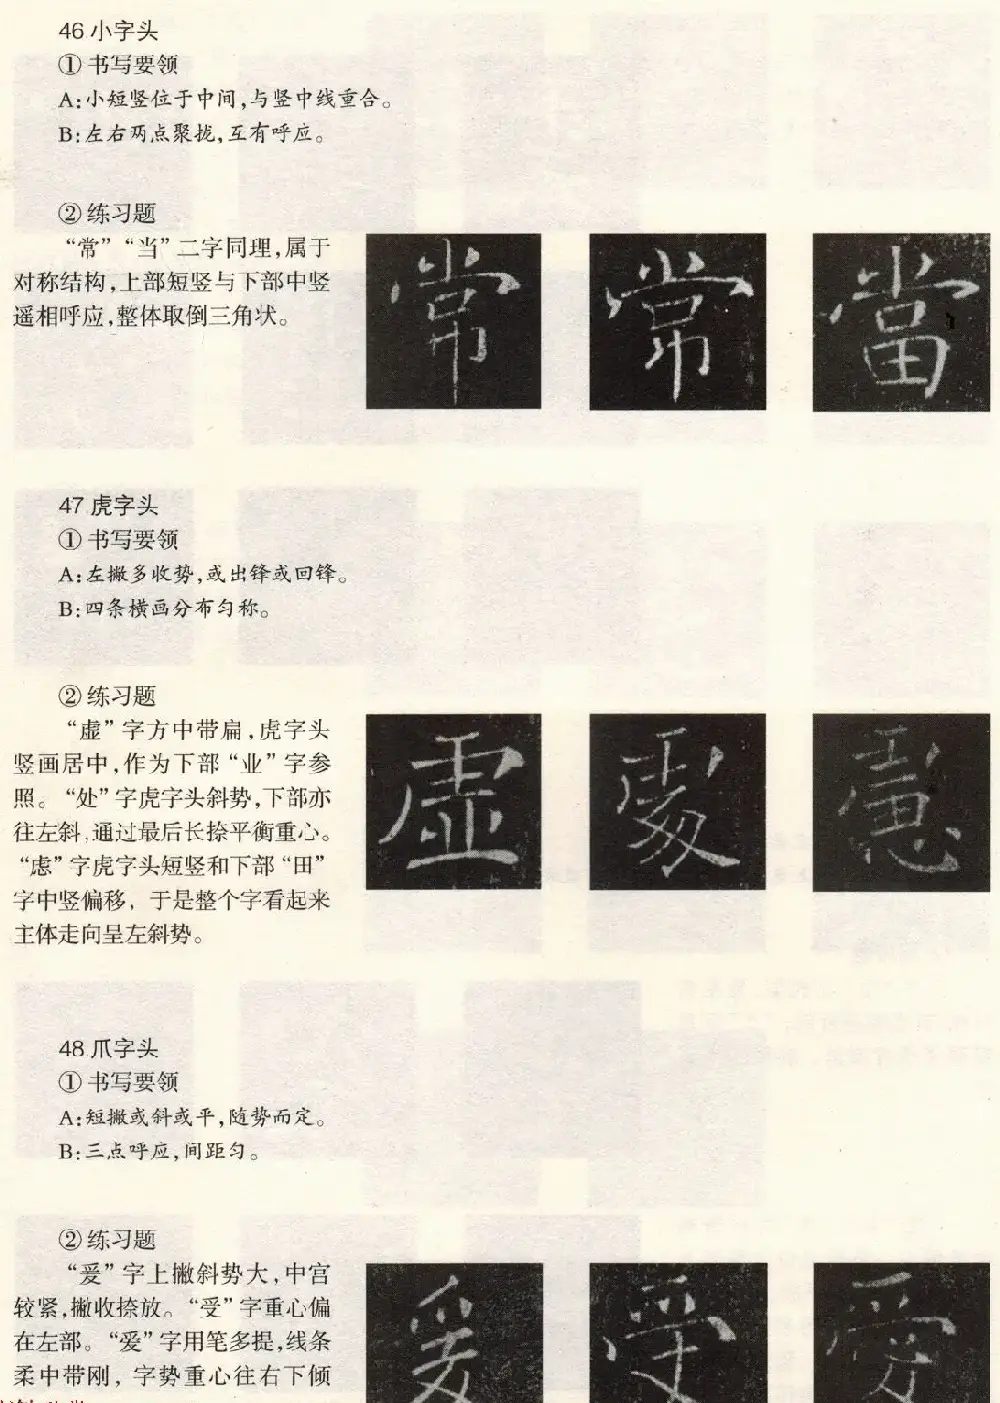 46 小字头
① 书写要领
A:小短竖位于中间,与竖中线重合。
B:左右两点聚拢,互有呼应。
② 练习题
“常”“当”二字同理,属于
对称结构,上部短竖与下部中竖
遥相呼应,整体取倒三角状。
常 常 當
47 虎字头
① 书写要领
A:左撇多收势,或出锋或回锋。
B:四条横画分布匀称。
② 练习题
“虚”字方中带扁,虎字头
竖画居中,作为下部“业”字参
照。“处”字虎字头斜势,下部亦
往左斜,通过最后长捺平衡重心。
“虑”字虎字头短竖和下部“田”
字中竖偏移,于是整个字看起来
主体走向呈左斜势。
虛 處 慮
48 爪字头
① 书写要领
A:短撇或斜或平,随势而定。
B:三点呼应,间距匀。
② 练习题
“爰”字上撇斜势大,中宫
较紧,撇收捺放。“受”字重心偏
在左部。“爱”字用笔多提,线条
柔中带刚,字势重心往右下倾
爰 受 愛